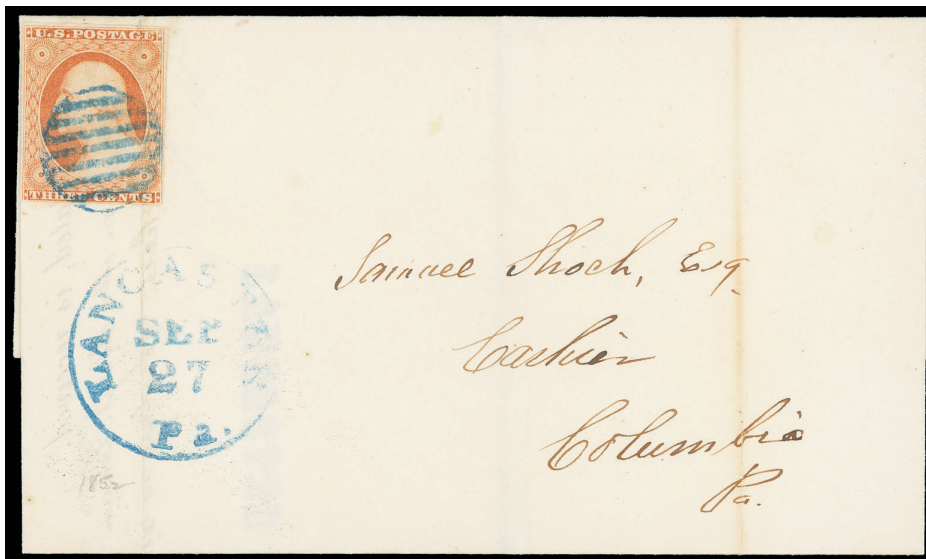 U.S. POSTAGE
THREE CENTS
LANCASTER
SEP
27
Pa.
Samuel Shoch, Esq.
Cashier
Columbia
Pa.
1852